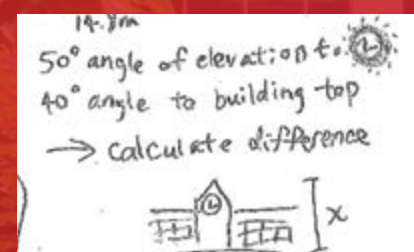 50° angle of elevation to
40° angle to building top
→ calculate difference
x